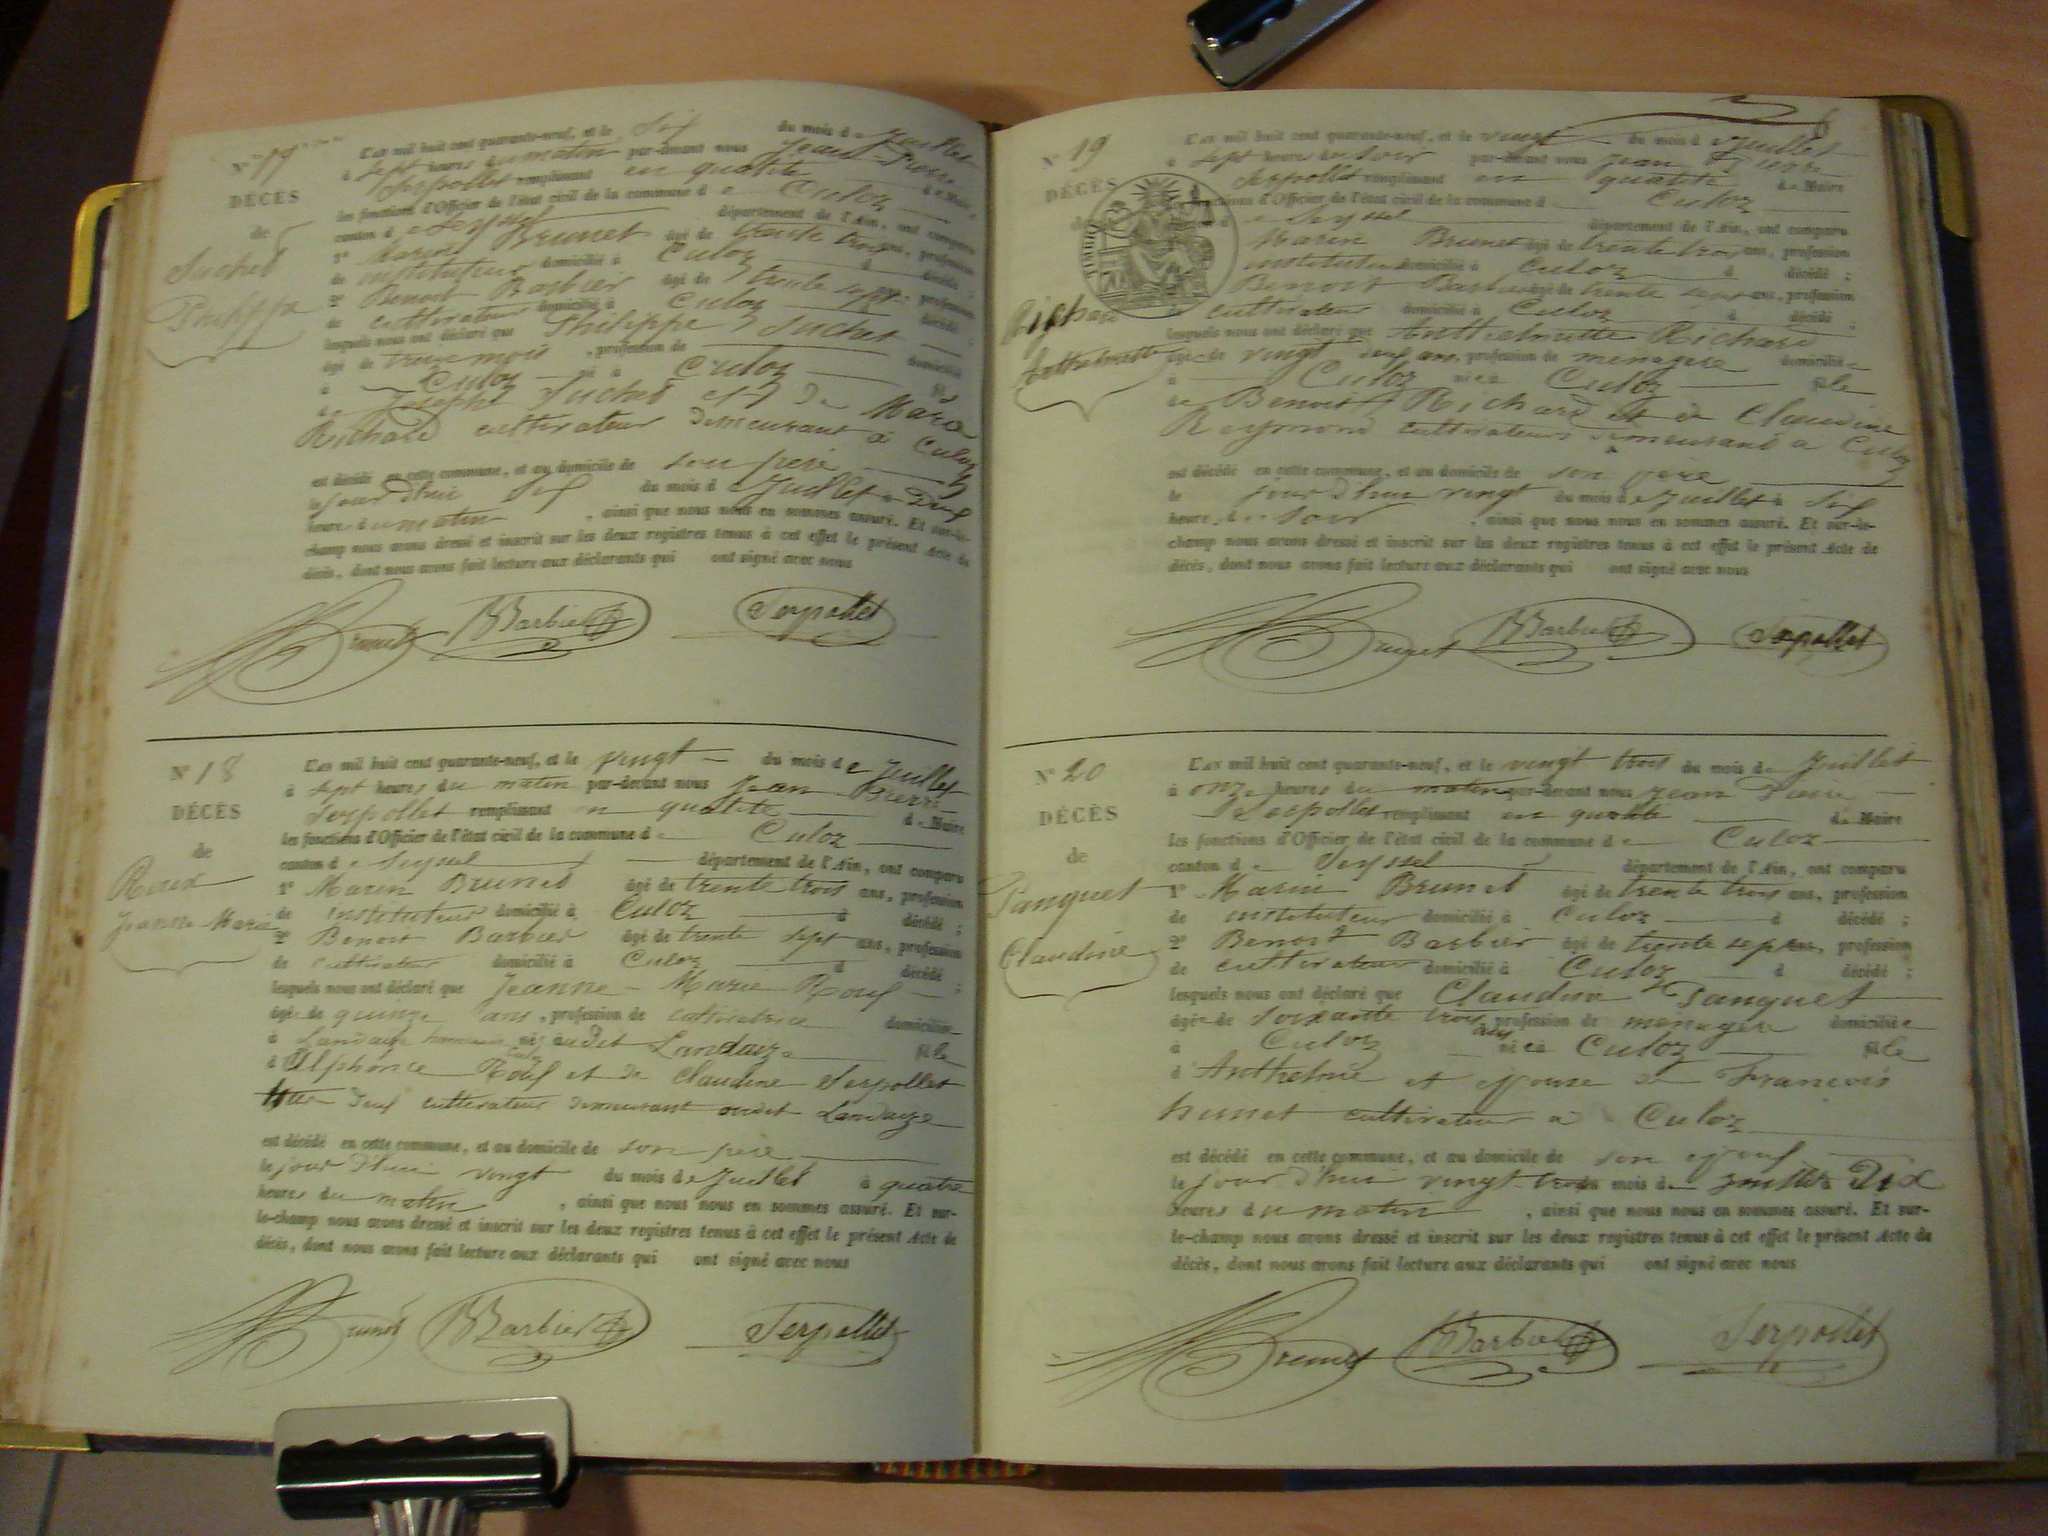 N° 17
DÉCÈS
de
Suchet
Philippe
L'an mil huit cent quarante-neuf, et le Six du mois de Juillet
à Sept heures du matin par-devant nous Jean-Pierre
Serpollet remplissant en qualité de Maire
les fonctions d'Officier de l'état civil de la commune de Culoz
canton de Seyssel département de l'Ain, ont comparu
1° Marin Brunet âgé de trente trois ans, profession
de instituteur domicilié à Culoz d décédé ;
2° Benoit Barbier âgé de trente sept ans, profession
de cultivateur domicilié à Culoz d décédé ;
lesquels nous ont déclaré que Philippe Suchet
âgé de mois , profession de domicilié
à Culoz né à Culoz fils
de Joseph Suchet et de
Richard cultivateur demeurant à Culoz
est décédé en cette commune, et au domicile de son père
le jour d'hui Six du mois de Juillet à Deux
heures du matin , ainsi que nous nous en sommes assuré. Et sur-le-
champ nous avons dressé et inscrit sur les deux registres tenus à cet effet le présent Acte de
décès, dont nous avons fait lecture aux déclarants qui ont signé avec nous
Brunet BBarbier Serpollet
N° 18
DÉCÈS
de
Roux
Jeanne-Marie
L'an mil huit cent quarante-neuf, et le vingt du mois de Juillet
à Sept heures du matin par-devant nous Jean-Pierre
Serpollet remplissant en qualité de Maire
les fonctions d'Officier de l'état civil de la commune de Culoz
canton de Seyssel département de l'Ain, ont comparu
1° Marin Brunet âgé de trente trois ans, profession
de instituteur domicilié à Culoz d décédé ;
2° Benoit Barbier âgé de trente sept ans, profession
de cultivateur domicilié à Culoz d décédé ;
lesquels nous ont déclaré que Jeanne-Marie Roux
âgée de quinze ans, profession de cultivatrice domiciliée
à Landaize née audit Landaize fille
d'Alphonce Roux et de Claudine Serpollet
deux cultivateurs demeurant audit Landaize
est décédé en cette commune, et au domicile de son père
le jour d'hui vingt du mois de Juillet à quatre
heures du matin , ainsi que nous nous en sommes assuré. Et sur-
le-champ nous avons dressé et inscrit sur les deux registres tenus à cet effet le présent Acte de
décès, dont nous avons fait lecture aux déclarants qui ont signé avec nous
Brunet BBarbier Serpollet
6
N° 19
DÉCÈS
de
Richard
Anthelmette
L'an mil huit cent quarante-neuf, et le vingt du mois de Juillet
à sept heures du soir par-devant nous Jean Pierre
Serpollet remplissant en qualité de Maire
les fonctions d'Officier de l'état civil de la commune d Culoz
canton de Seyssel département de l'Ain, ont comparu
Marin Brunet âgé de trente trois ans, profession
instituteur domicilié à Culoz d décédé ;
Benoit Barbier âgé de trente sept ans, profession
de cultivateur domicilié à Culoz d décédé ;
lesquels nous ont déclaré que Anthelmette Richard
âgée de vingt deux ans, profession de ménagère domiciliée
à Culoz née à Culoz fille
de Benoit Richard et de Claudine
Reymond cultivateurs demeurant à Culoz
est décédé en cette commune, et au domicile de son père
le jour d'hui vingt du mois de Juillet à Six
heures du soir , ainsi que nous nous en sommes assuré. Et sur-le-
champ nous avons dressé et inscrit sur les deux registres tenus à cet effet le présent Acte de
décès, dont nous avons fait lecture aux déclarants qui ont signé avec nous
Brunet BBarbier Serpollet
N° 20
DÉCÈS
de
Tanguet
Claudine
L'an mil huit cent quarante-neuf, et le vingt trois du mois de Juillet
à onze heures du matin par-devant nous Jean Pierre
Serpollet remplissant en qualité de Maire
les fonctions d'Officier de l'état civil de la commune de Culoz
canton de Seyssel département de l'Ain, ont comparu
1° Marin Brunet âgé de trente trois ans, profession
de instituteur domicilié à Culoz d décédé ;
2° Benoit Barbier âgé de trente sept ans, profession
de cultivateur domicilié à Culoz d décédé ;
lesquels nous ont déclaré que Claudine Tanguet
âgée de soixante trois ans profession de ménagère domiciliée
à Culoz née à Culoz fille
d'Anthelme et épouse de François
cultivateur à Culoz
est décédé en cette commune, et au domicile de son
le jour d'hui vingt trois du mois de Juillet à Dix
heures du matin , ainsi que nous nous en sommes assuré. Et sur-
le-champ nous avons dressé et inscrit sur les deux registres tenus à cet effet le présent Acte de
décès, dont nous avons fait lecture aux déclarants qui ont signé avec nous
Brunet BBarbier Serpollet